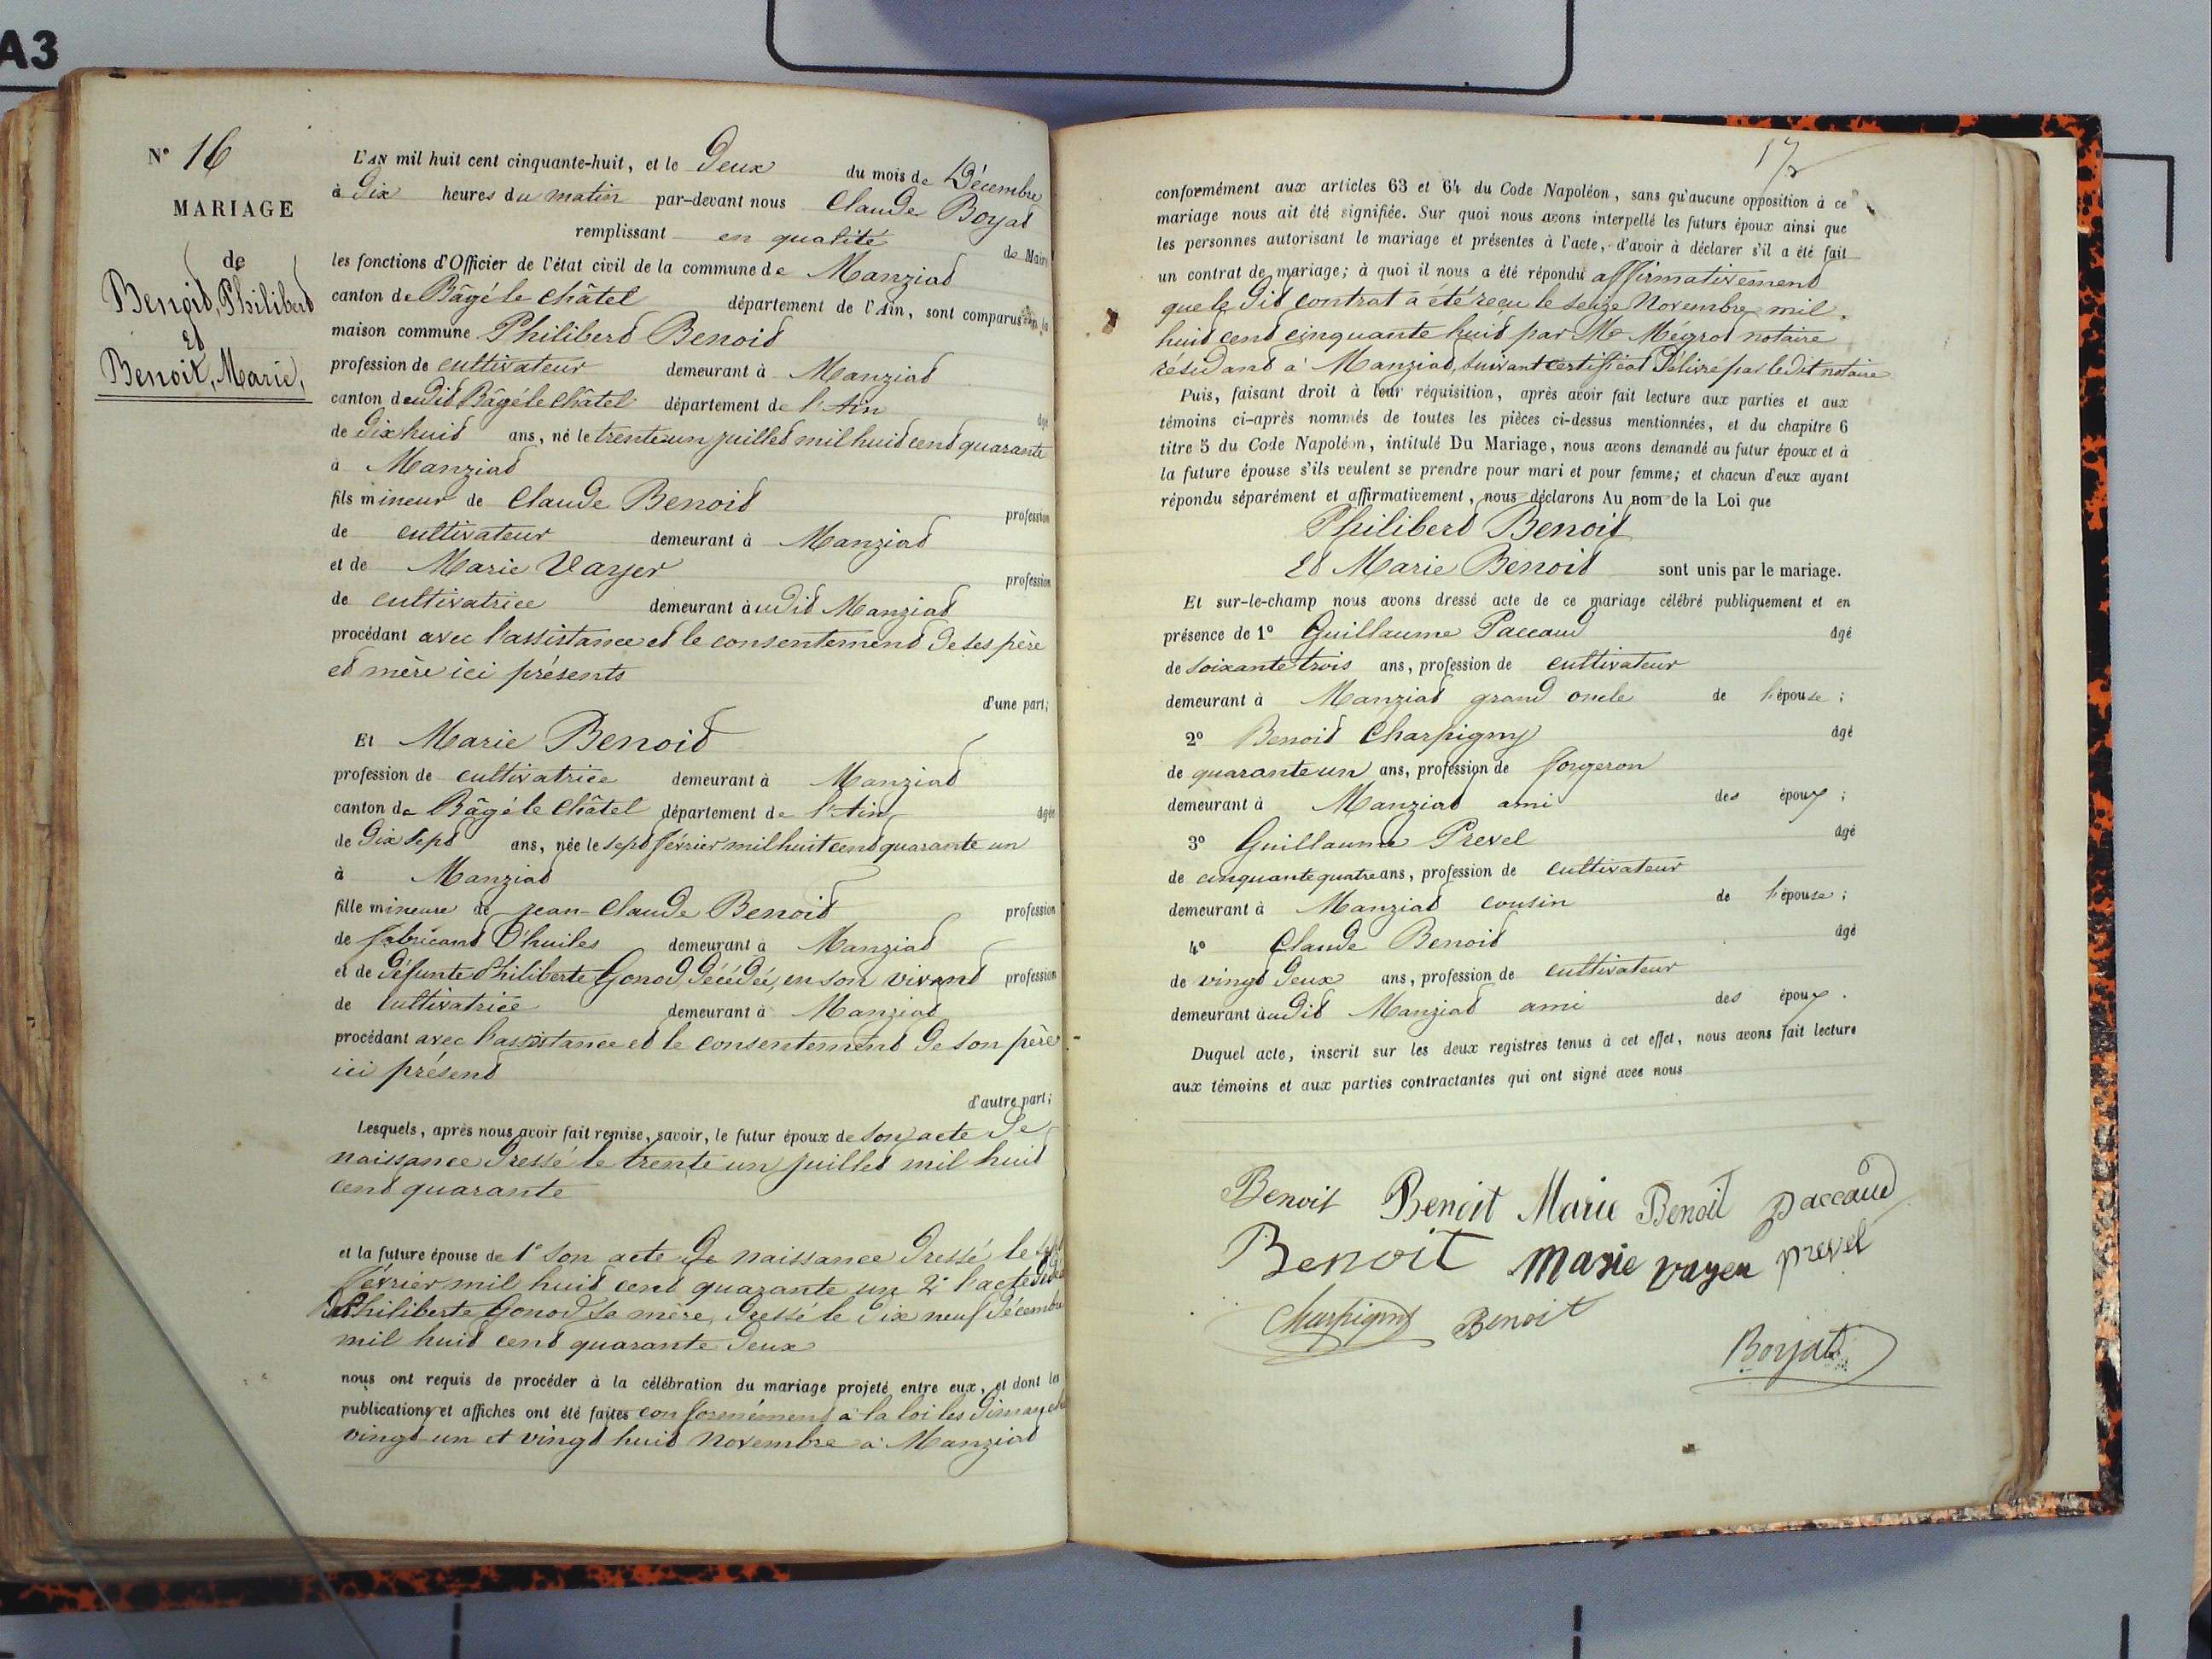 A3
N° 16
MARIAGE
de
Benoit, Philibert
Et
Benoit, Marie,
L'AN mil huit cent cinquante-huit, et le Deux du mois de Décembre
à Dix heures du matin par-devant nous Claude Boyat
remplissant en qualité de Maire
les fonctions d'Officier de l'état civil de la commune de Manziat
canton de Bâgé le Châtel département de l'Ain, sont comparus en la
maison commune Philibert Benoit
profession de cultivateur demeurant à Manziat
canton dudit Bâgé le Châtel département de l'Ain âgé
de Dix huit ans, né le trente un juillet mil huit cent quarante
à Manziat
fils mineur de Claude Benoit profession
de cultivateur demeurant à Manziat
et de Marie Vayer profession
de cultivatrice demeurant audit Manziat
procédant avec l'assistance et le consentement de ses père
et mère ici présents
d'une part;
Et Marie Benoit
profession de cultivatrice demeurant à Manziat
canton de Bâgé le Châtel département de l'Ain âgée
de Dix sept ans, née le sept février mil huit cent quarante un
à Manziat
fille mineure de Jean-Claude Benoit profession
de fabricant d'huiles demeurant à Manziat
et de Défunte Philiberte Gonod Décédée, en son vivant profession
de cultivatrice demeurant à Manziat
procédant avec l'assistance et le consentement de son père
ici présent
d'autre part;
Lesquels, après nous avoir fait remise, savoir, le futur époux de son acte de
naissance Dressé le trente un juillet mil huit
cent quarante
et la future épouse de 1° son acte de naissance Dressé le sept
février mil huit cent quarante un 2° l'acte de
Philiberte Gonod sa mère, Dressé le Dix neuf Décembre
mil huit cent quarante Deux
nous ont requis de procéder à la célébration du mariage projeté entre eux, et dont les
publications et affiches ont été faites conformément à la loi les Dimanches
vingt un et vingt huit Novembre à Manziat
17
conformément aux articles 63 et 64 du Code Napoléon, sans qu'aucune opposition à ce
mariage nous ait été signifiée. Sur quoi nous avons interpellé les futurs époux ainsi que
les personnes autorisant le mariage et présentes à l'acte, d'avoir à déclarer s'il a été fait
un contrat de mariage; à quoi il nous a été répondu affirmativement
que le Dit contrat a été reçu le seize Novembre mil
huit cent cinquante huit par Me Mégrot notaire
résidant à Manziat, suivant certificat Délivré par le dit notaire
Puis, faisant droit à leur réquisition, après avoir fait lecture aux parties et aux
témoins ci-après nommés de toutes les pièces ci-dessus mentionnées, et du chapitre 6
titre 5 du Code Napoléon, intitulé Du Mariage, nous avons demandé au futur époux et à
la future épouse s'ils veulent se prendre pour mari et pour femme; et chacun d'eux ayant
répondu séparément et affirmativement, nous déclarons Au nom de la Loi que
Philibert Benoit
Et Marie Benoit sont unis par le mariage.
Et sur-le-champ nous avons dressé acte de ce mariage célébré publiquement et en
présence de 1° Guillaume Paccaud âgé
de soixante trois ans, profession de cultivateur
demeurant à Manziat grand oncle de l'épouse;
2° Benoit Charpigny âgé
de quarante un ans, profession de forgeron
demeurant à Manziat ami des époux;
3° Guillaume Prevel âgé
de cinquante quatre ans, profession de cultivateur
demeurant à Manziat cousin de l'épouse;
4° Claude Benoit âgé
de vingt Deux ans, profession de cultivateur
demeurant audit Manziat ami des époux.
Duquel acte, inscrit sur les deux registres tenus à cet effet, nous avons fait lecture
aux témoins et aux parties contractantes qui ont signé avec nous
Benoit Benoit Marie Benoit Paccaud
Benoit Marie vayer prevel
Charpigny Benoit
Boyat